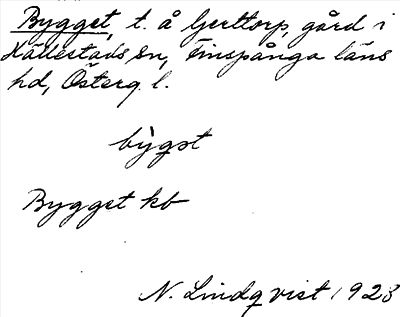 Bygget, t. å Gerttorp, gård i
Hällestads sn, Finspånga läns
hd, Österg. l.
bygst
Bygget kb
N. Lindqvist 1923